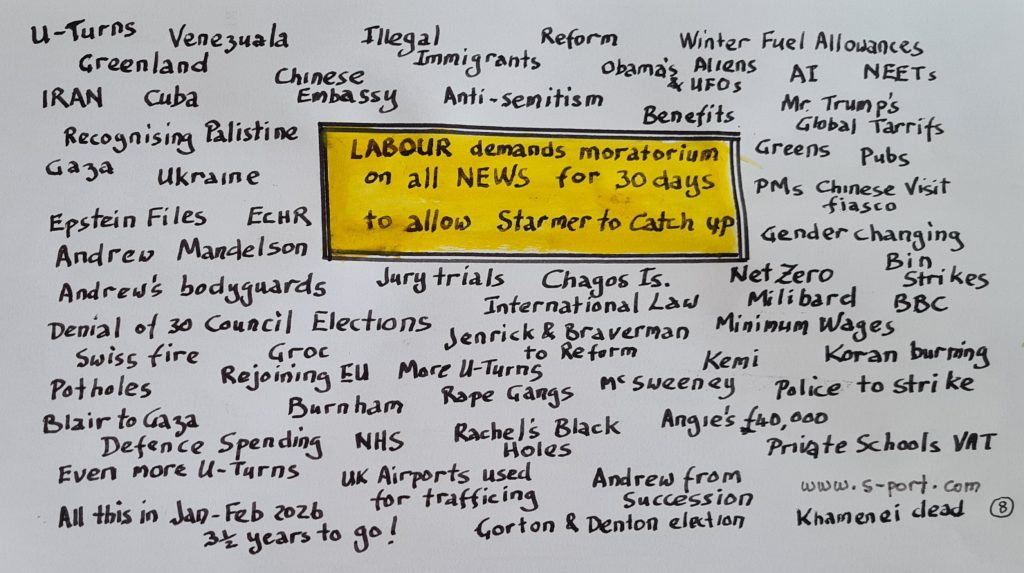 U-Turns Venezuala Illegal Immigrants Reform Winter Fuel Allowances
Greenland Chinese Embassy Obama's Aliens & UFOs AI NEETs
IRAN Cuba Anti-semitism Benefits Mr. Trump's Global Tarrifs
Recognising Palistine
LABOUR demands moratorium
on all NEWS for 30 days
to allow Starmer to Catch up
Greens Pubs
Gaza Ukraine
PMs Chinese Visit fiasco
Epstein Files ECHR
Gender changing
Andrew Mandelson
Bin Strikes
Andrew's bodyguards Jury trials Chagos Is. Net Zero
International Law Milibard BBC
Denial of 30 Council Elections Jenrick & Braverman to Reform Minimum Wages
Swiss fire Groc Kemi Koran burning
Potholes Rejoining EU More U-Turns McSweeney Police to strike
Blair to Gaza Burnham Rape Gangs Angie's £40,000
Defence Spending NHS Rachel's Black Holes Private Schools VAT
Even more U-Turns UK Airports used for trafficing Andrew from Succession www.s-port.com
All this in Jan-Feb 2026 Gorton & Denton election Khamenei dead 8
3½ years to go!